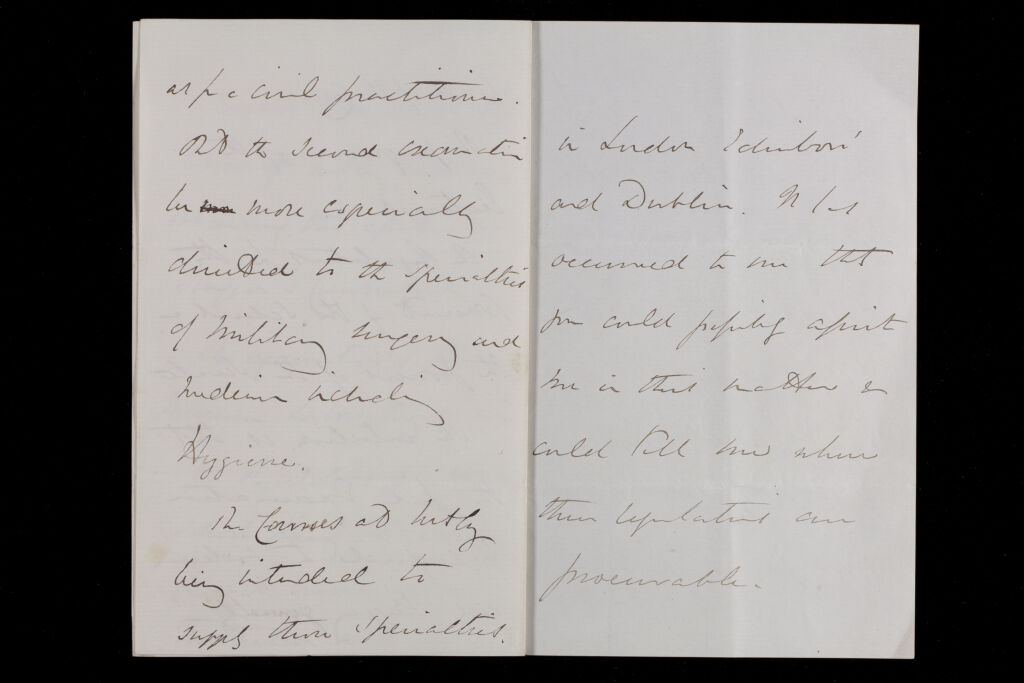 as for a civil practitioner.
But the second examination
be more especially
directed to the specialties
of military surgery and
medicine including
Hygiene.
The Courses at Netley
being intended to
supply these specialties.
in London Edinboro'
and Dublin. It has
occurred to me that
you could possibly assist
me in this matter or
could tell me where
these regulations are
procurable.